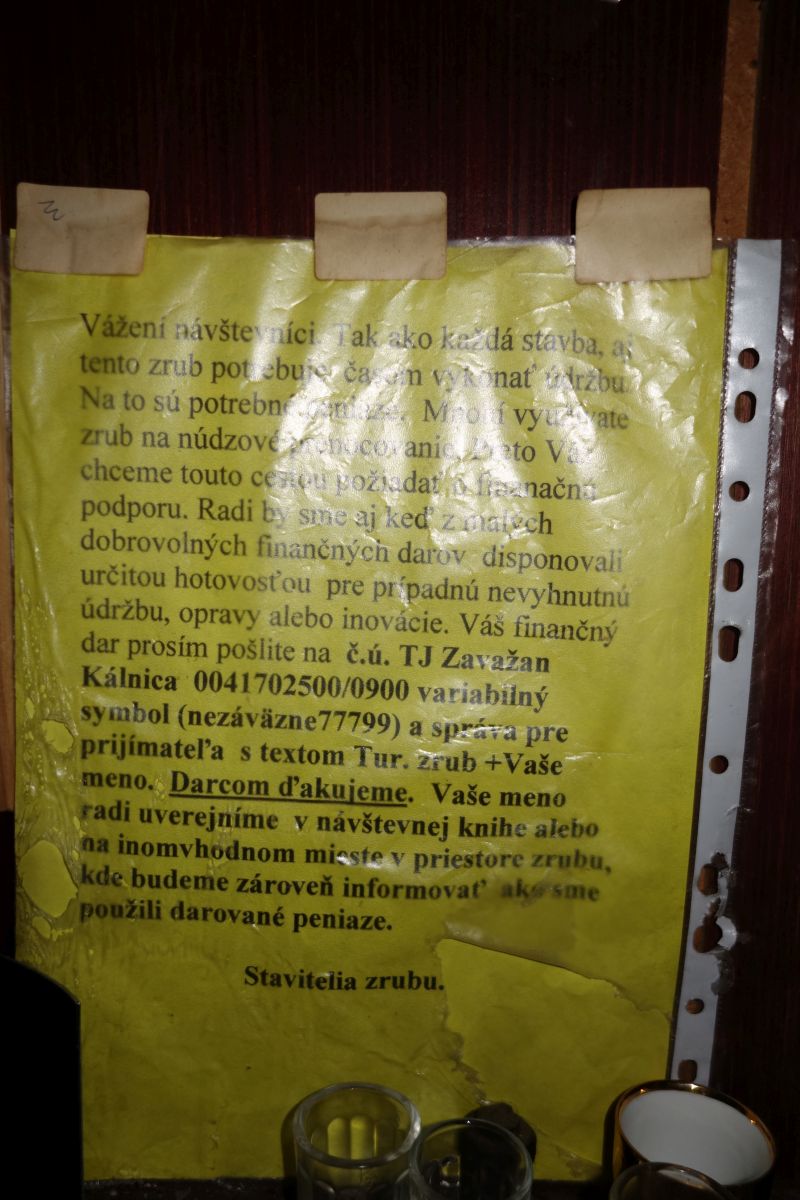 Vážení návštevníci. Tak ako každá stavba, aj
tento zrub potrebuje časom vykonať údržbu.
Na to sú potrebné peniaze. Mnohí využívate
zrub na núdzové prenocovanie. Preto Vás
chceme touto cestou požiadať o finanačnú
podporu. Radi by sme aj keď z malých
dobrovolných finančných darov disponovali
určitou hotovosťou pre prípadnú nevyhnutnú
údržbu, opravy alebo inovácie. Váš finančný
dar prosím pošlite na č.ú. TJ Zavažan
Kálnica 0041702500/0900 variabilný
symbol (nezáväzne77799) a správa pre
prijímateľa s textom Tur. zrub +Vaše
meno. Darcom ďakujeme. Vaše meno
radi uverejníme v návštevnej knihe alebo
na inomvhodnom mieste v priestore zrubu,
kde budeme zároveň informovať ako sme
použili darované peniaze.
Stavitelia zrubu.